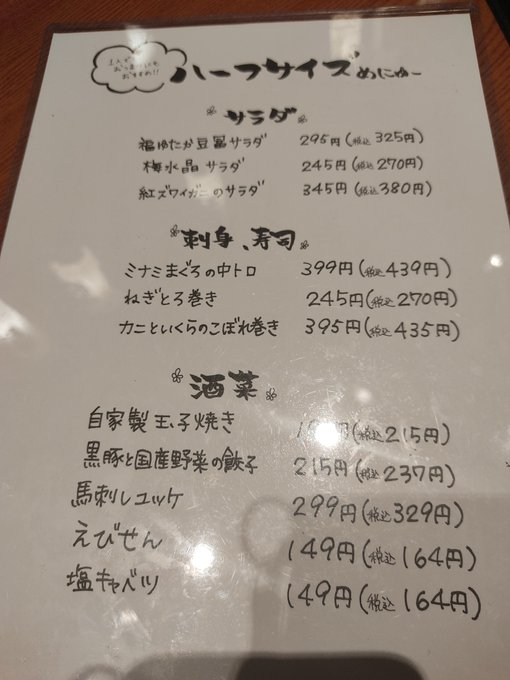 1人で
おすすめ!!
ハーフサイズめにゅー
サラダ
福ゆたか豆冨サラダ 295円(税込325円)
梅水晶サラダ 245円(税込270円)
紅ズワイガニのサラダ 345円(税込380円)
刺身、寿司
ミナミまぐろの中トロ 399円(税込439円)
ねぎとろ巻き 245円(税込270円)
カニといくらのこぼれ巻き 395円(税込435円)
酒菜
自家製玉子焼き (税込215円)
黒豚と国産野菜の餃子 215円(税込237円)
馬刺しユッケ 299円(税込329円)
えびせん 149円(税込164円)
塩キャベツ 149円(税込164円)